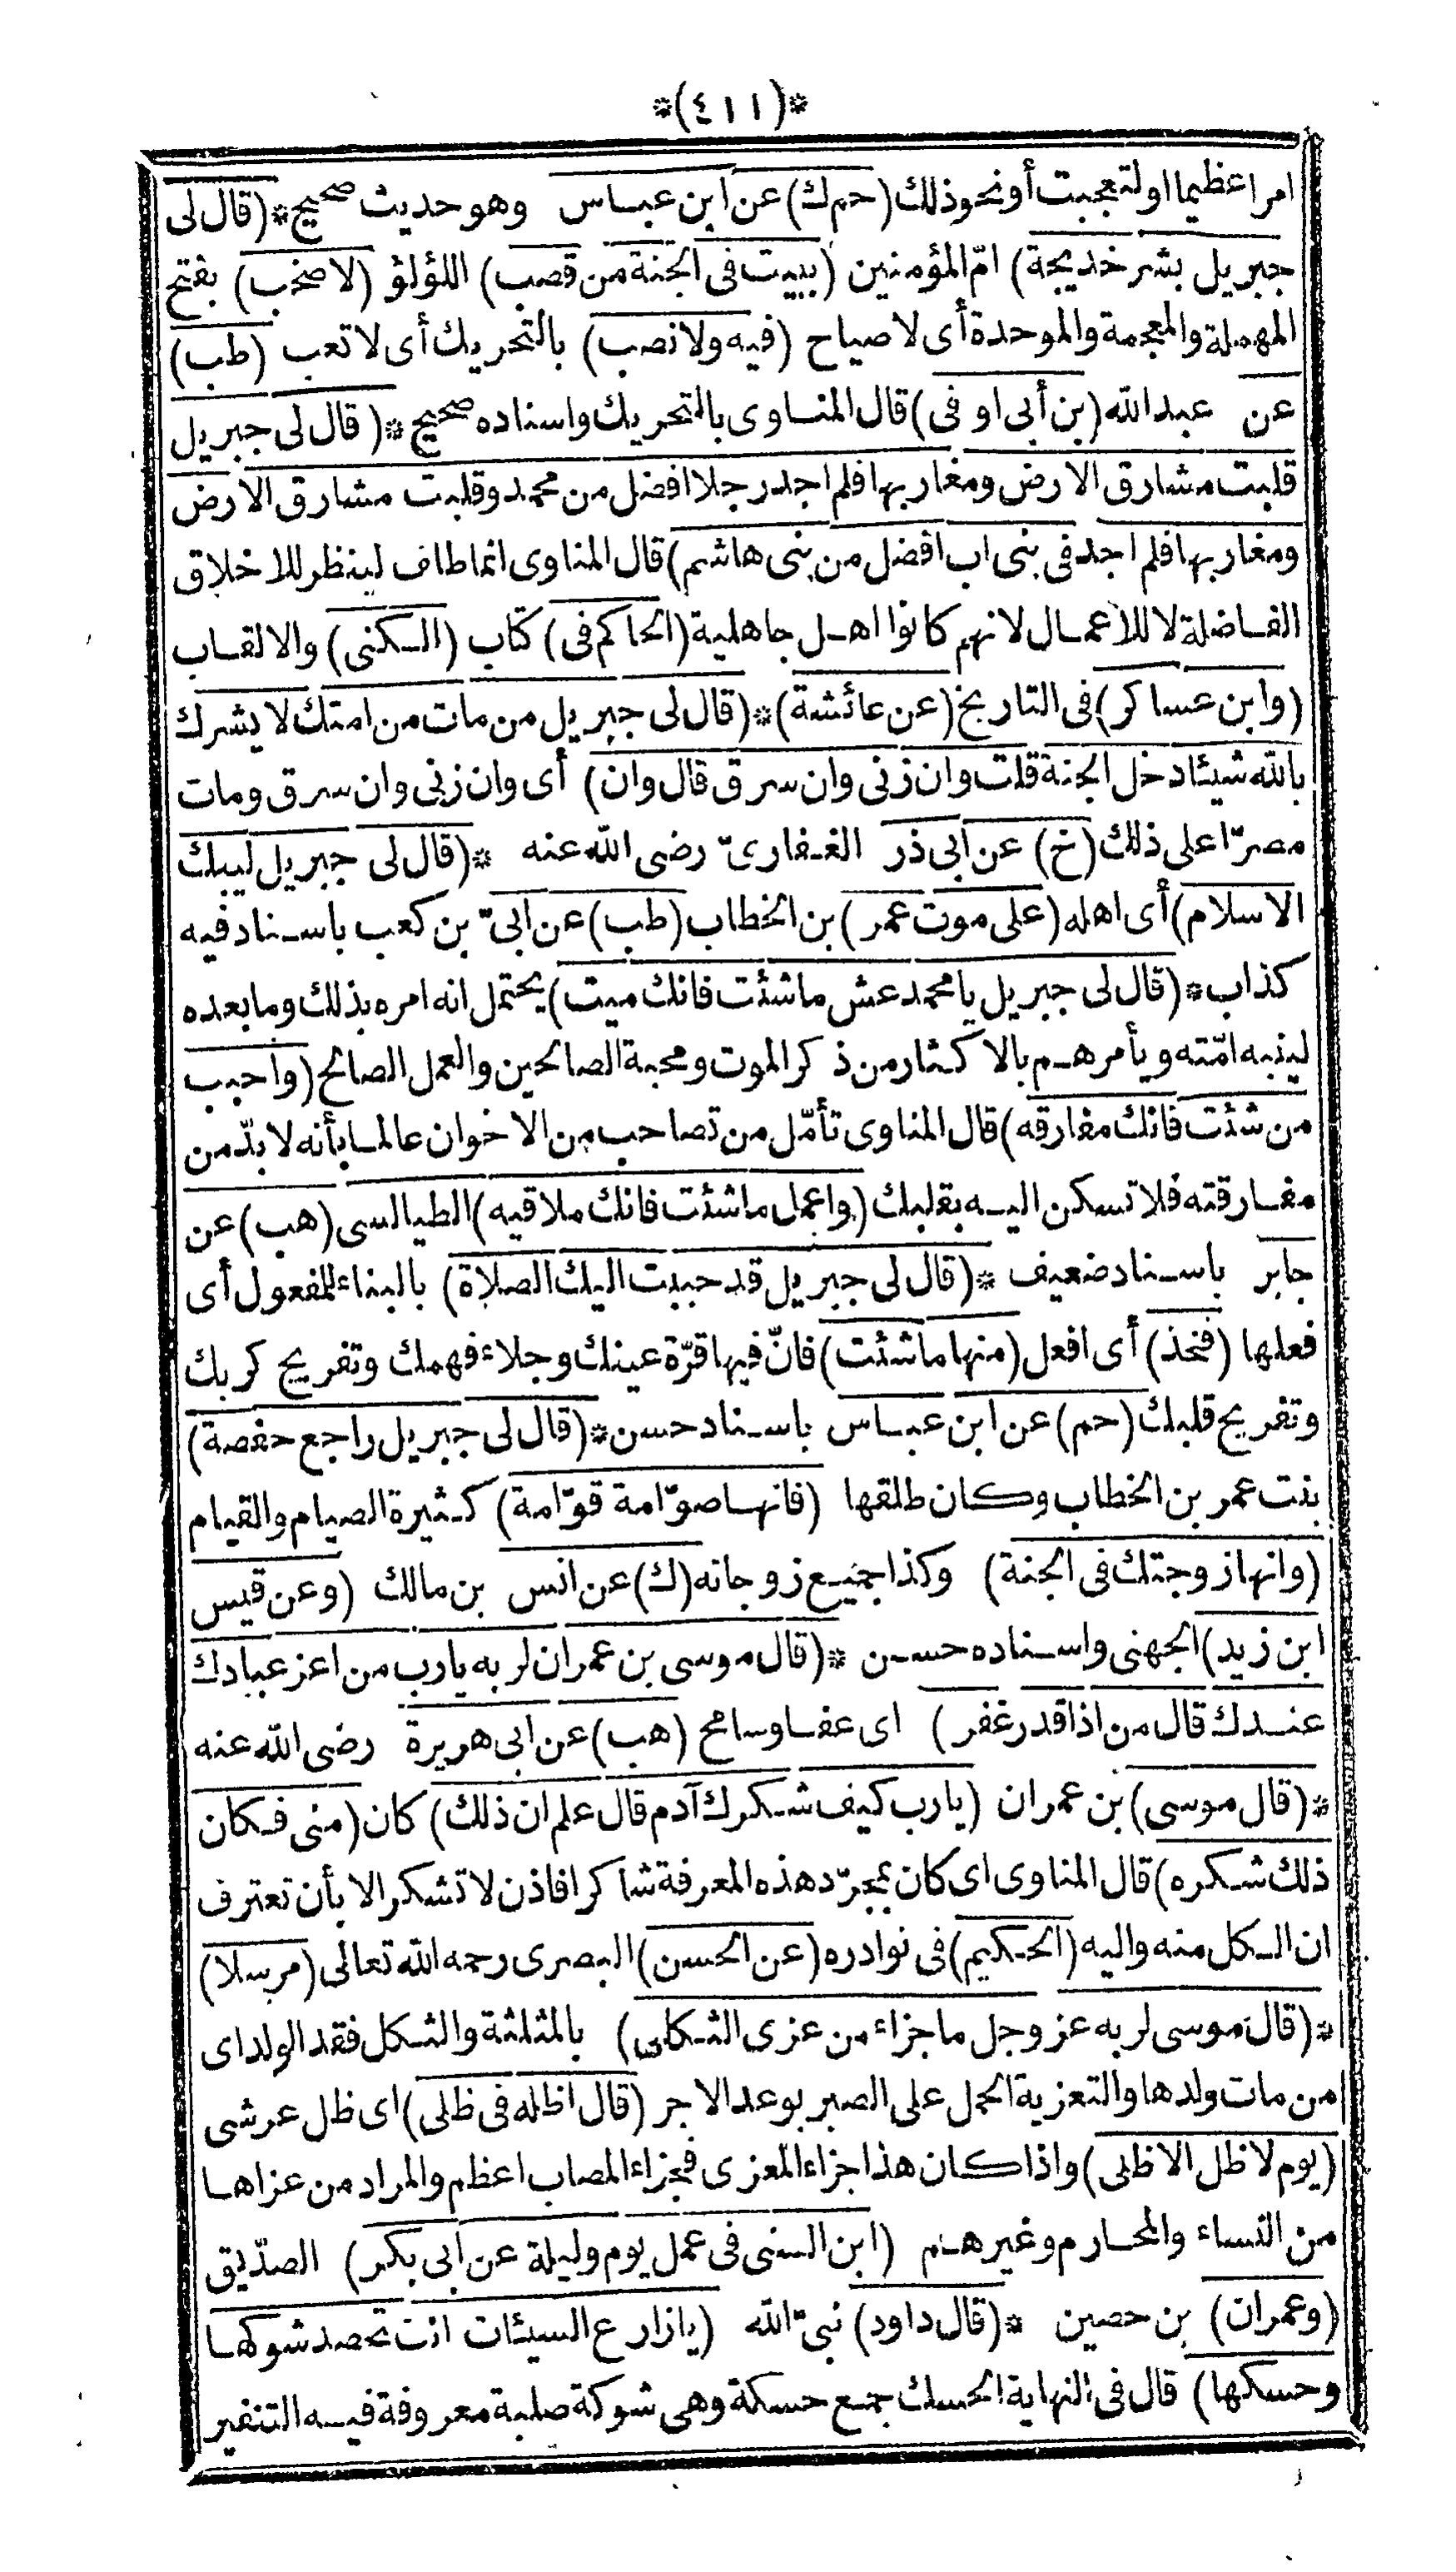 *(٤١١)*
امرا عظيما او لتعجبت أو نحو ذلك (حم ك) عن ابن عباس وهو حديث صحيح *(قال لى
جبريل بشر خديجة) امّ المؤمنين (ببيت فى الجنة من قصب) اللؤلؤ (لا صخب) بفتح
المهملة والمعجمة والموحدة أى لا صياح (فيه ولا نصب) بالتحريك أى لا تعب (طب)
عن عبد الله (بن أبى اوفى) قال المناوى بالتحريك واسناده صحيح *(قال لى جبريل
قلبت مشارق الارض ومغاربها فلم اجد رجلا افضل من محمد وقلبت مشارق الارض
ومغاربها فلم اجد فى بنى اب افضل من بنى هاشم) قال المناوى انما طاف لينظر للاخلاق
الفاضلة لا للاعمال لانهم كانوا اهل جاهلية (الحاكم فى) كتاب (الكنى) والالقاب
(وابن عساكر) فى التاريخ (عن عائشة) *(قال لى جبريل من مات من امتك لا يشرك
بالله شيئا دخل الجنة قلت وان زنى وان سرق قال وان) أى وان زنى وان سرق ومات
مصرّا على ذلك (خ) عن ابى ذر الغفارىّ رضى الله عنه *(قال لى جبريل ليبك
الاسلام) أى اهله (على موت عمر) بن الخطاب (طب) عن ابىّ بن كعب باسناد فيه
كذاب *(قال لى جبريل يا محمد عش ما شئت فانك ميت) يحتمل انه امره بذلك وما بعده
لينبه امّته ويأمرهم بالاكثار من ذكر الموت ومحبة الصالحين والعمل الصالح (واحبب
من شئت فانك مفارقه) قال المناوى تأمّل من تصاحب من الاخوان عالما بأنه لا بدّ من
مفارقته فلا تسكن اليه بقلبك (واعمل ما شئت فانك ملاقيه) الطيالسى (هب) عن
جابر باسناد ضعيف *(قال لى جبريل قد حببت اليك الصلاة) بالبناء للمفعول أى
فعلها (فخذ) أى افعل (منها ما شئت) فانّ فيها قرّة عينك وجلاء فهمك وتفريج كربك
وتفريح قلبك (حم) عن ابن عباس باسناد حسن *(قال لى جبريل راجع حفصة)
بنت عمر بن الخطاب وكان طلقها (فانها صوّامة قوّامة) كثيرة الصيام والقيام
(وانها زوجتك فى الجنة) وكذا جميع زوجاته (ك) عن انس بن مالك (وعن قيس
ابن زيد) الجهنى واسناده حسن *(قال موسى بن عمران لربه يا رب من اعز عبادك
عندك قال من اذا قدر غفر) اى عفا وسامح (هب) عن ابى هريرة رضى الله عنه
*(قال موسى) بن عمران (يا رب كيف شكرك آدم قال علم ان ذلك) كان (منى فكان
ذلك شكره) قال المناوى اى كان بمجرّد هذه المعرفة شاكرا فاذن لا تشكر الا بأن تعترف
ان الكل منه واليه (الحكيم) فى نوادره (عن الحسن) البصرى رحمه الله تعالى (مرسلا)
*(قال موسى لربه عز وجل ما جزاء من عزى الثكلى) بالمثلثة والثكل فقد الولد اى
من مات ولدها والتعزية الحمل على الصبر بوعد الاجر (قال اظله فى ظلى) اى ظل عرشى
(يوم لا ظل الا ظلى) واذا كان هذا جزاء المعزى فجزاء المصاب اعظم والمراد من عزاها
من النساء والمحارم وغيرهم (ابن السنى فى عمل يوم وليلة عن ابى بكر) الصدّيق
(وعمران) بن حصين *(قال داود) نبىّ الله (يا زارع السيئات انت تحصد شوكها
وحسكها) قال فى النهاية الحسك جمع حسكة وهى شوكة صلبة معروفة فيه التنفير